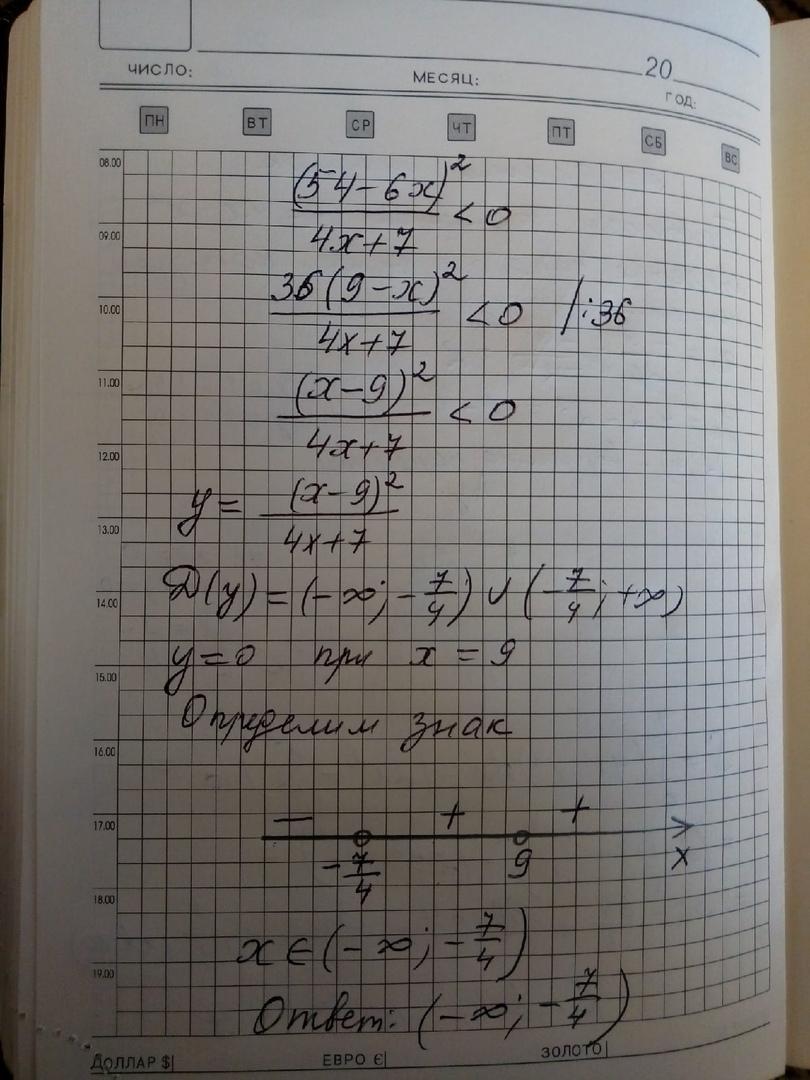 ЧИСЛО: МЕСЯЦ: 20 ГОД:
ПН ВТ СР ЧТ ПТ СБ ВС
08.00
(54-6x)² / 4x+7 < 0
09.00
36(9-x)² / 4x+7 < 0 /:36
10.00
11.00
(x-9)² / 4x+7 < 0
12.00
y = (x-9)² / 4x+7
13.00
D(y) = (-∞; -7/4) ∪ (-7/4; +∞)
14.00
y=0 при x = 9
15.00
Определим знак
16.00
− + +
17.00
-7/4 9 x
18.00
x ∈ (-∞; -7/4)
19.00
Ответ: (-∞; -7/4)
ДОЛЛАР $| ЕВРО €| ЗОЛОТО|